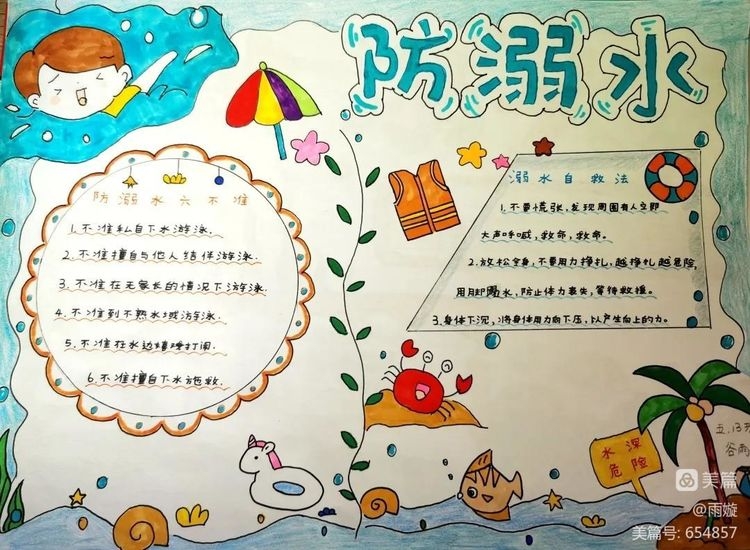 防溺水
防溺水六不准
1.不准私自下水游泳.
2.不准擅自与他人结伴游泳.
3.不准在无家长的情况下游泳.
4.不准到不熟水域游泳.
5.不准在水边嬉戏打闹.
6.不准擅自下水施救.
溺水自救法
1.不要慌张,发现周围有人立即
大声呼喊,救命,救命.
2.放松全身,不要用力挣扎,越挣扎越危险,
用脚踢水,防止体力丧失,等待救援.
3.身体下沉,将身体用力向下压,以产生向上的力.
水深
危险
五.13
谷雨
美篇
@雨璇
美篇号: 654857